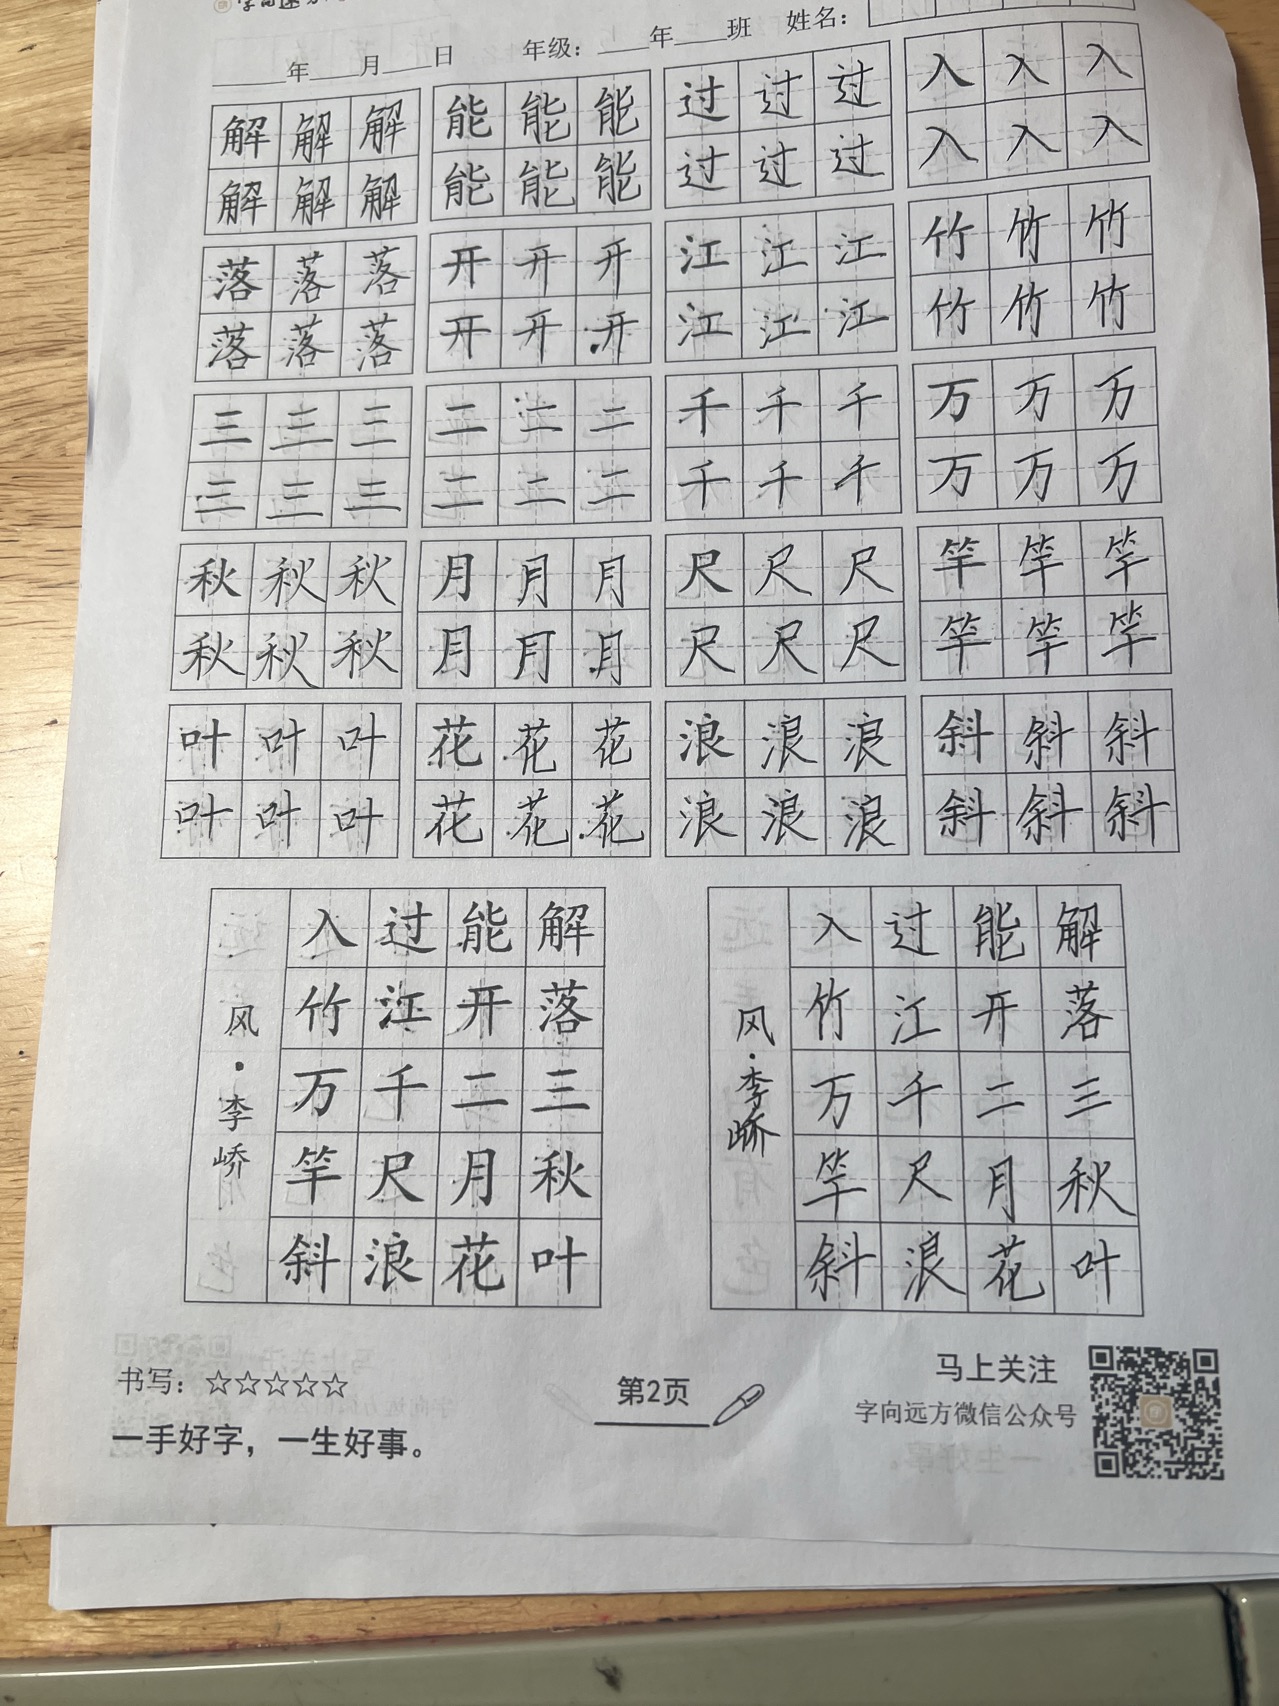 年 月 日 年级： 年 班 姓名：
解 解 解 能 能 能 过 过 过 入 入 入
解 解 解 能 能 能 过 过 过 入 入 入
落 落 落 开 开 开 江 江 江 竹 竹 竹
落 落 落 开 开 开 江 江 江 竹 竹 竹
三 三 三 二 二 二 千 千 千 万 万 万
三 三 三 二 二 二 千 千 千 万 万 万
秋 秋 秋 月 月 月 尺 尺 尺 竿 竿 竿
秋 秋 秋 月 月 月 尺 尺 尺 竿 竿 竿
叶 叶 叶 花 花 花 浪 浪 浪 斜 斜 斜
叶 叶 叶 花 花 花 浪 浪 浪 斜 斜 斜
解落三秋叶
能开二月花
过江千尺浪
入竹万竿斜
风·李峤
解落三秋叶
能开二月花
过江千尺浪
入竹万竿斜
风·李峤
书写：☆☆☆☆☆
一手好字，一生好事。
第2页
马上关注
字向远方微信公众号